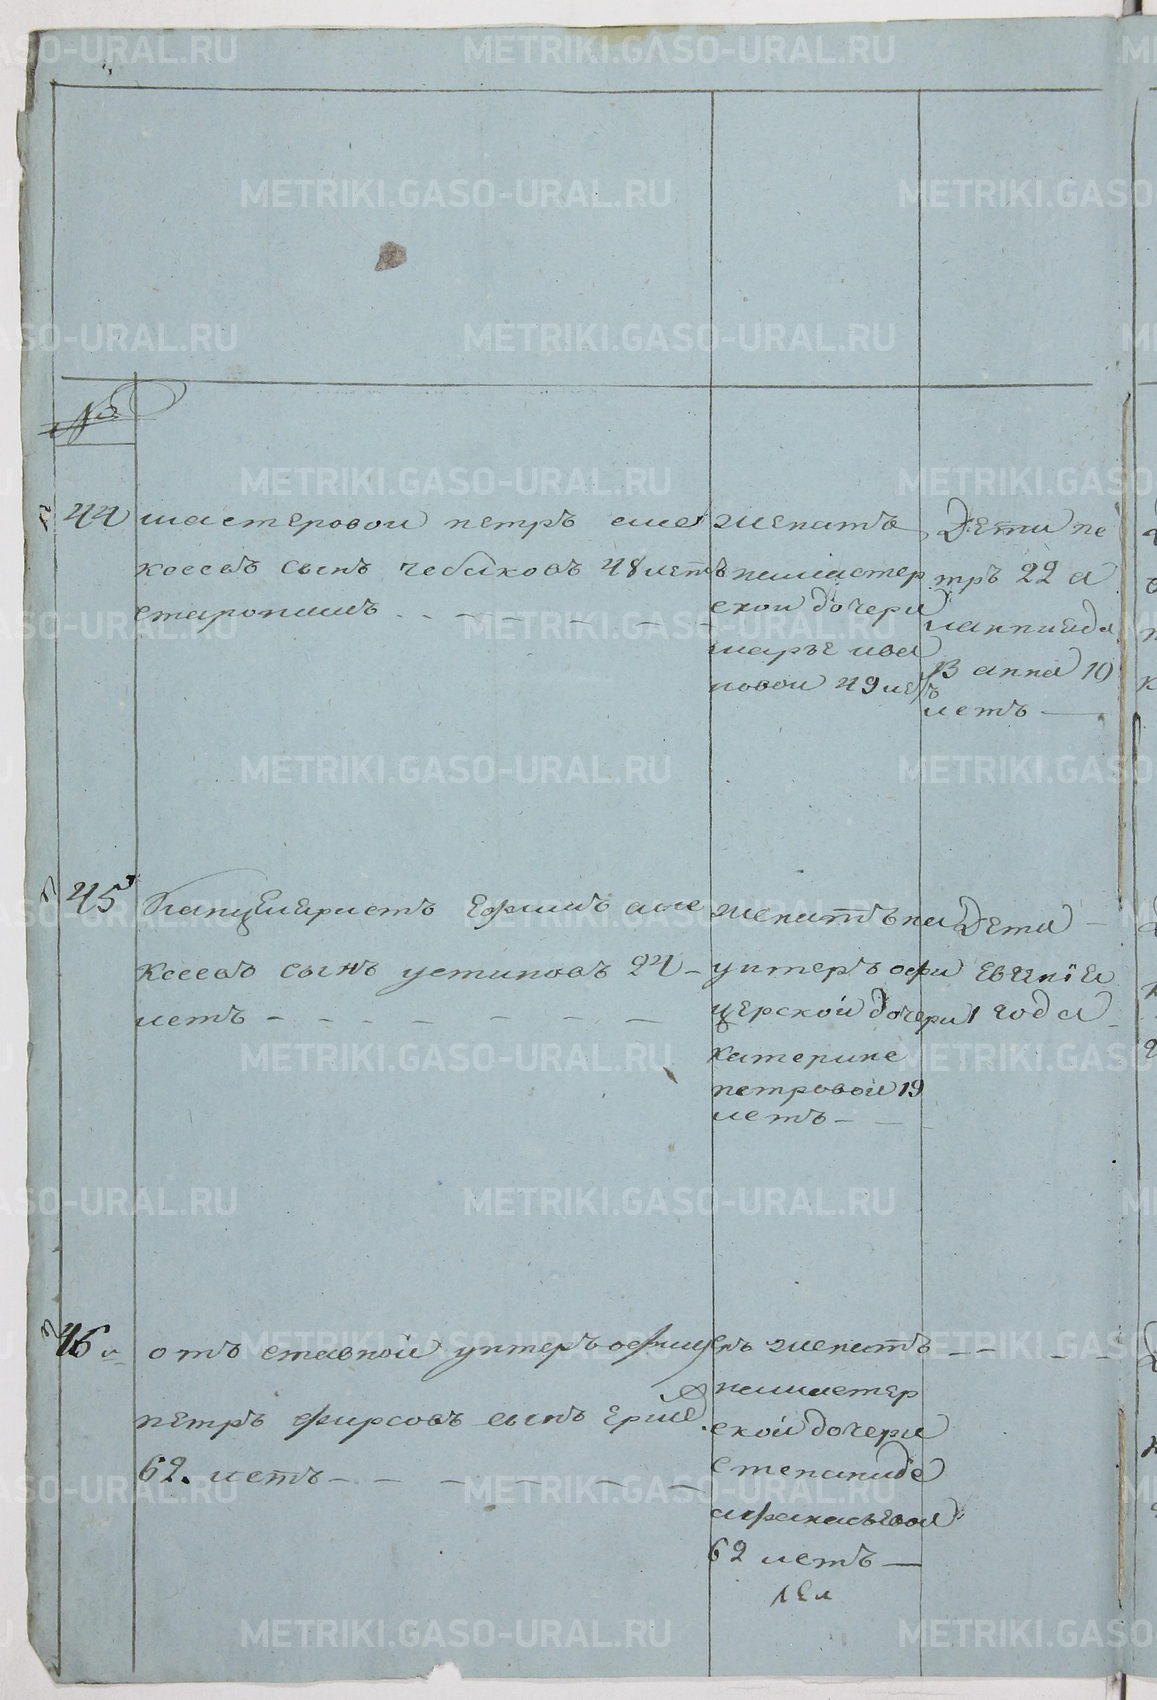 №
44 мастеровои петръ але
ксеевъ сынъ чебыковъ 48 летъ
старопишъ
женатъ
на мастер
скои дочери
марье ива
новои 49 летъ
Дети пе
тръ 22 а
лет анна 10
летъ
45 Канцеляристъ Ефимъ але
ксеевъ сынъ устиновъ 24
летъ
женатъ на
унтеръ офи
церской дочери
катерине
петровой 19
летъ
Дети
Евгеніи
1 года
46 отъ ставной унтеръ офицеръ
петръ фирсовъ сынъ
62. летъ
женатъ
на мастер
ской дочери
степаниде
афанасьевои
62 летъ
METRIKI.GASO-URAL.RU